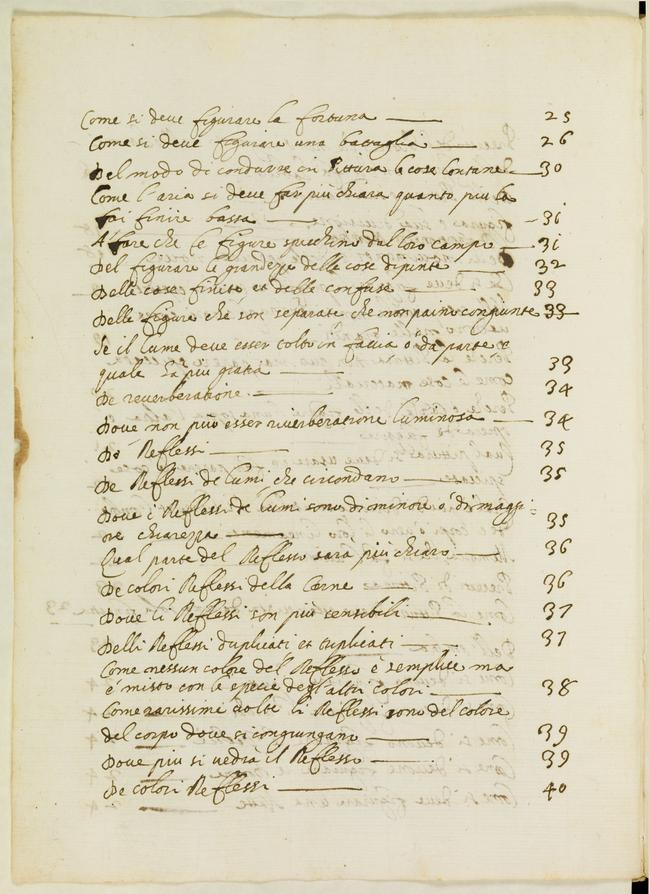 Come si deve figurare la fortuna — 25
Come si deve figurare una battaglia — 26
Del modo di condurre in Pittura le cose lontane — 30
Come l'aria si deve far più chiara quanto più la
fai finire bassa — 31
A fare che le figure spicchino dal loro campo — 31
Del figurare le grandezze delle cose dipinte — 32
Delle cose finite et delle confuse — 33
Delle figure che son separate che non paino congiunte 33
Se il lume deve esser tolto in facia ò da parte e
quale dà più gratia — 33
De reverberatione — 34
Dove non può esser riverberatione luminosa — 34
De Reflessi — 35
De Reflessi de lumi che circondano — 35
Dove i Reflessi de lumi sono di minore o di maggi=
ore chiarezza — 35
Qual parte del Reflesso sara più chiaro — 36
De colori Reflessi della Carne — 36
Dove li Reflessi son più sensibili — 37
Delli Reflessi duplicati et triplicati — 37
Come nessun colore del Reflesso è semplice ma
è misto con le specie degl'altri colori — 38
Come rarissime volte li Reflessi sono del colore
del corpo dove si congiungano — 39
Dove più si vedrà il Reflesso — 39
De colori Reflessi — 40